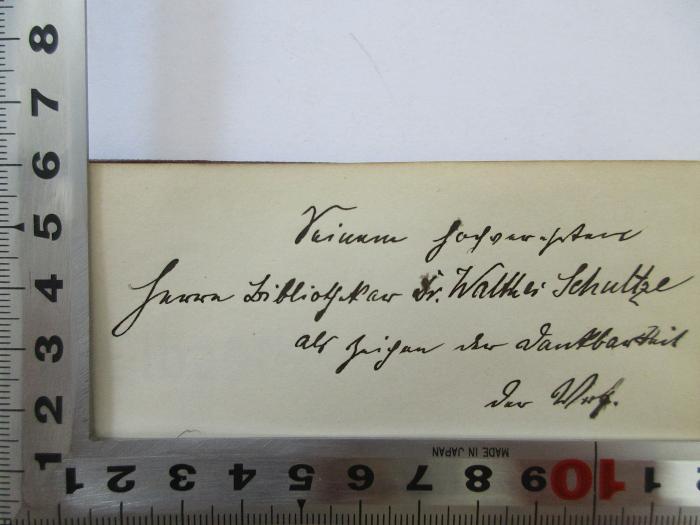 Seinem hochverehrten
Herrn Bibliothekar Dr. Walther Schultze
als Zeichen der Dankbarkeit
der Vrf.
8
7
6
5
4
3
2
1
MADE IN JAPAN
1 2 3 4 5 6 7 8 9 10 11